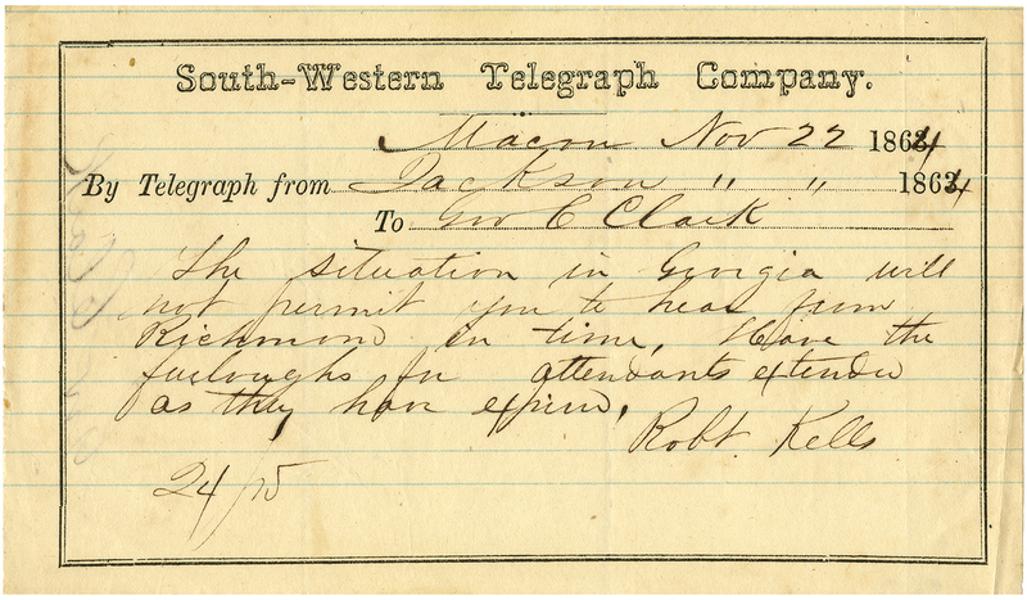 South-Western Telegraph Company.
Macon Nov 22 1864
By Telegraph from Jackson " " 1864
To Gov C Clark
The situation in Georgia will
not permit you to hear from
Richmond in time, Have the
furloughs for attendants extended
as they have expired,
Robt. Kells
24